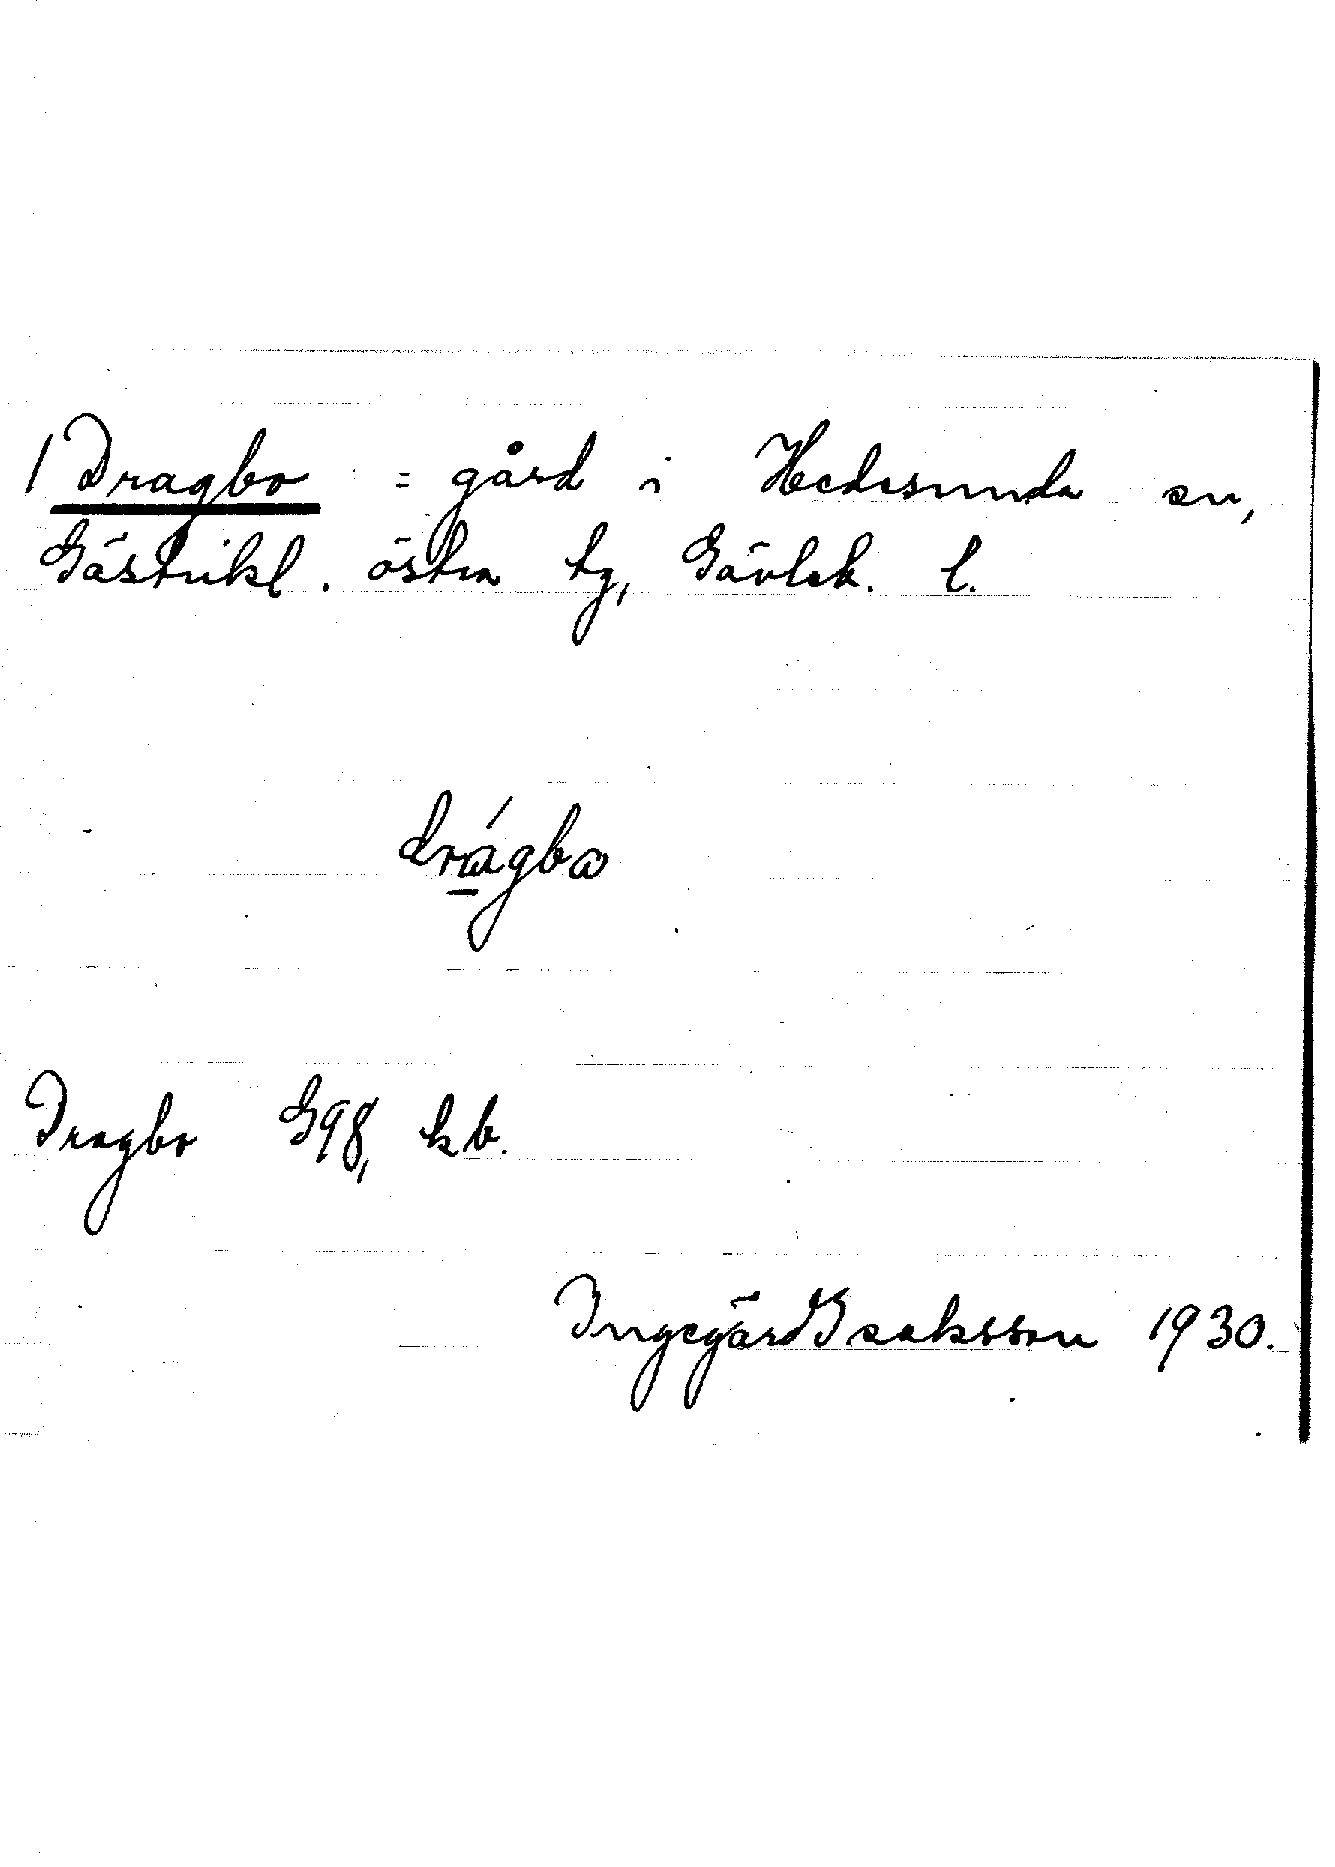 1 Dragbo = gård i Hedesunda sn,
Gästrikl. östra tg, Gävleb. l.
drágba
Dragbo G98, kb.
Ingegärd Isaksson 1930.